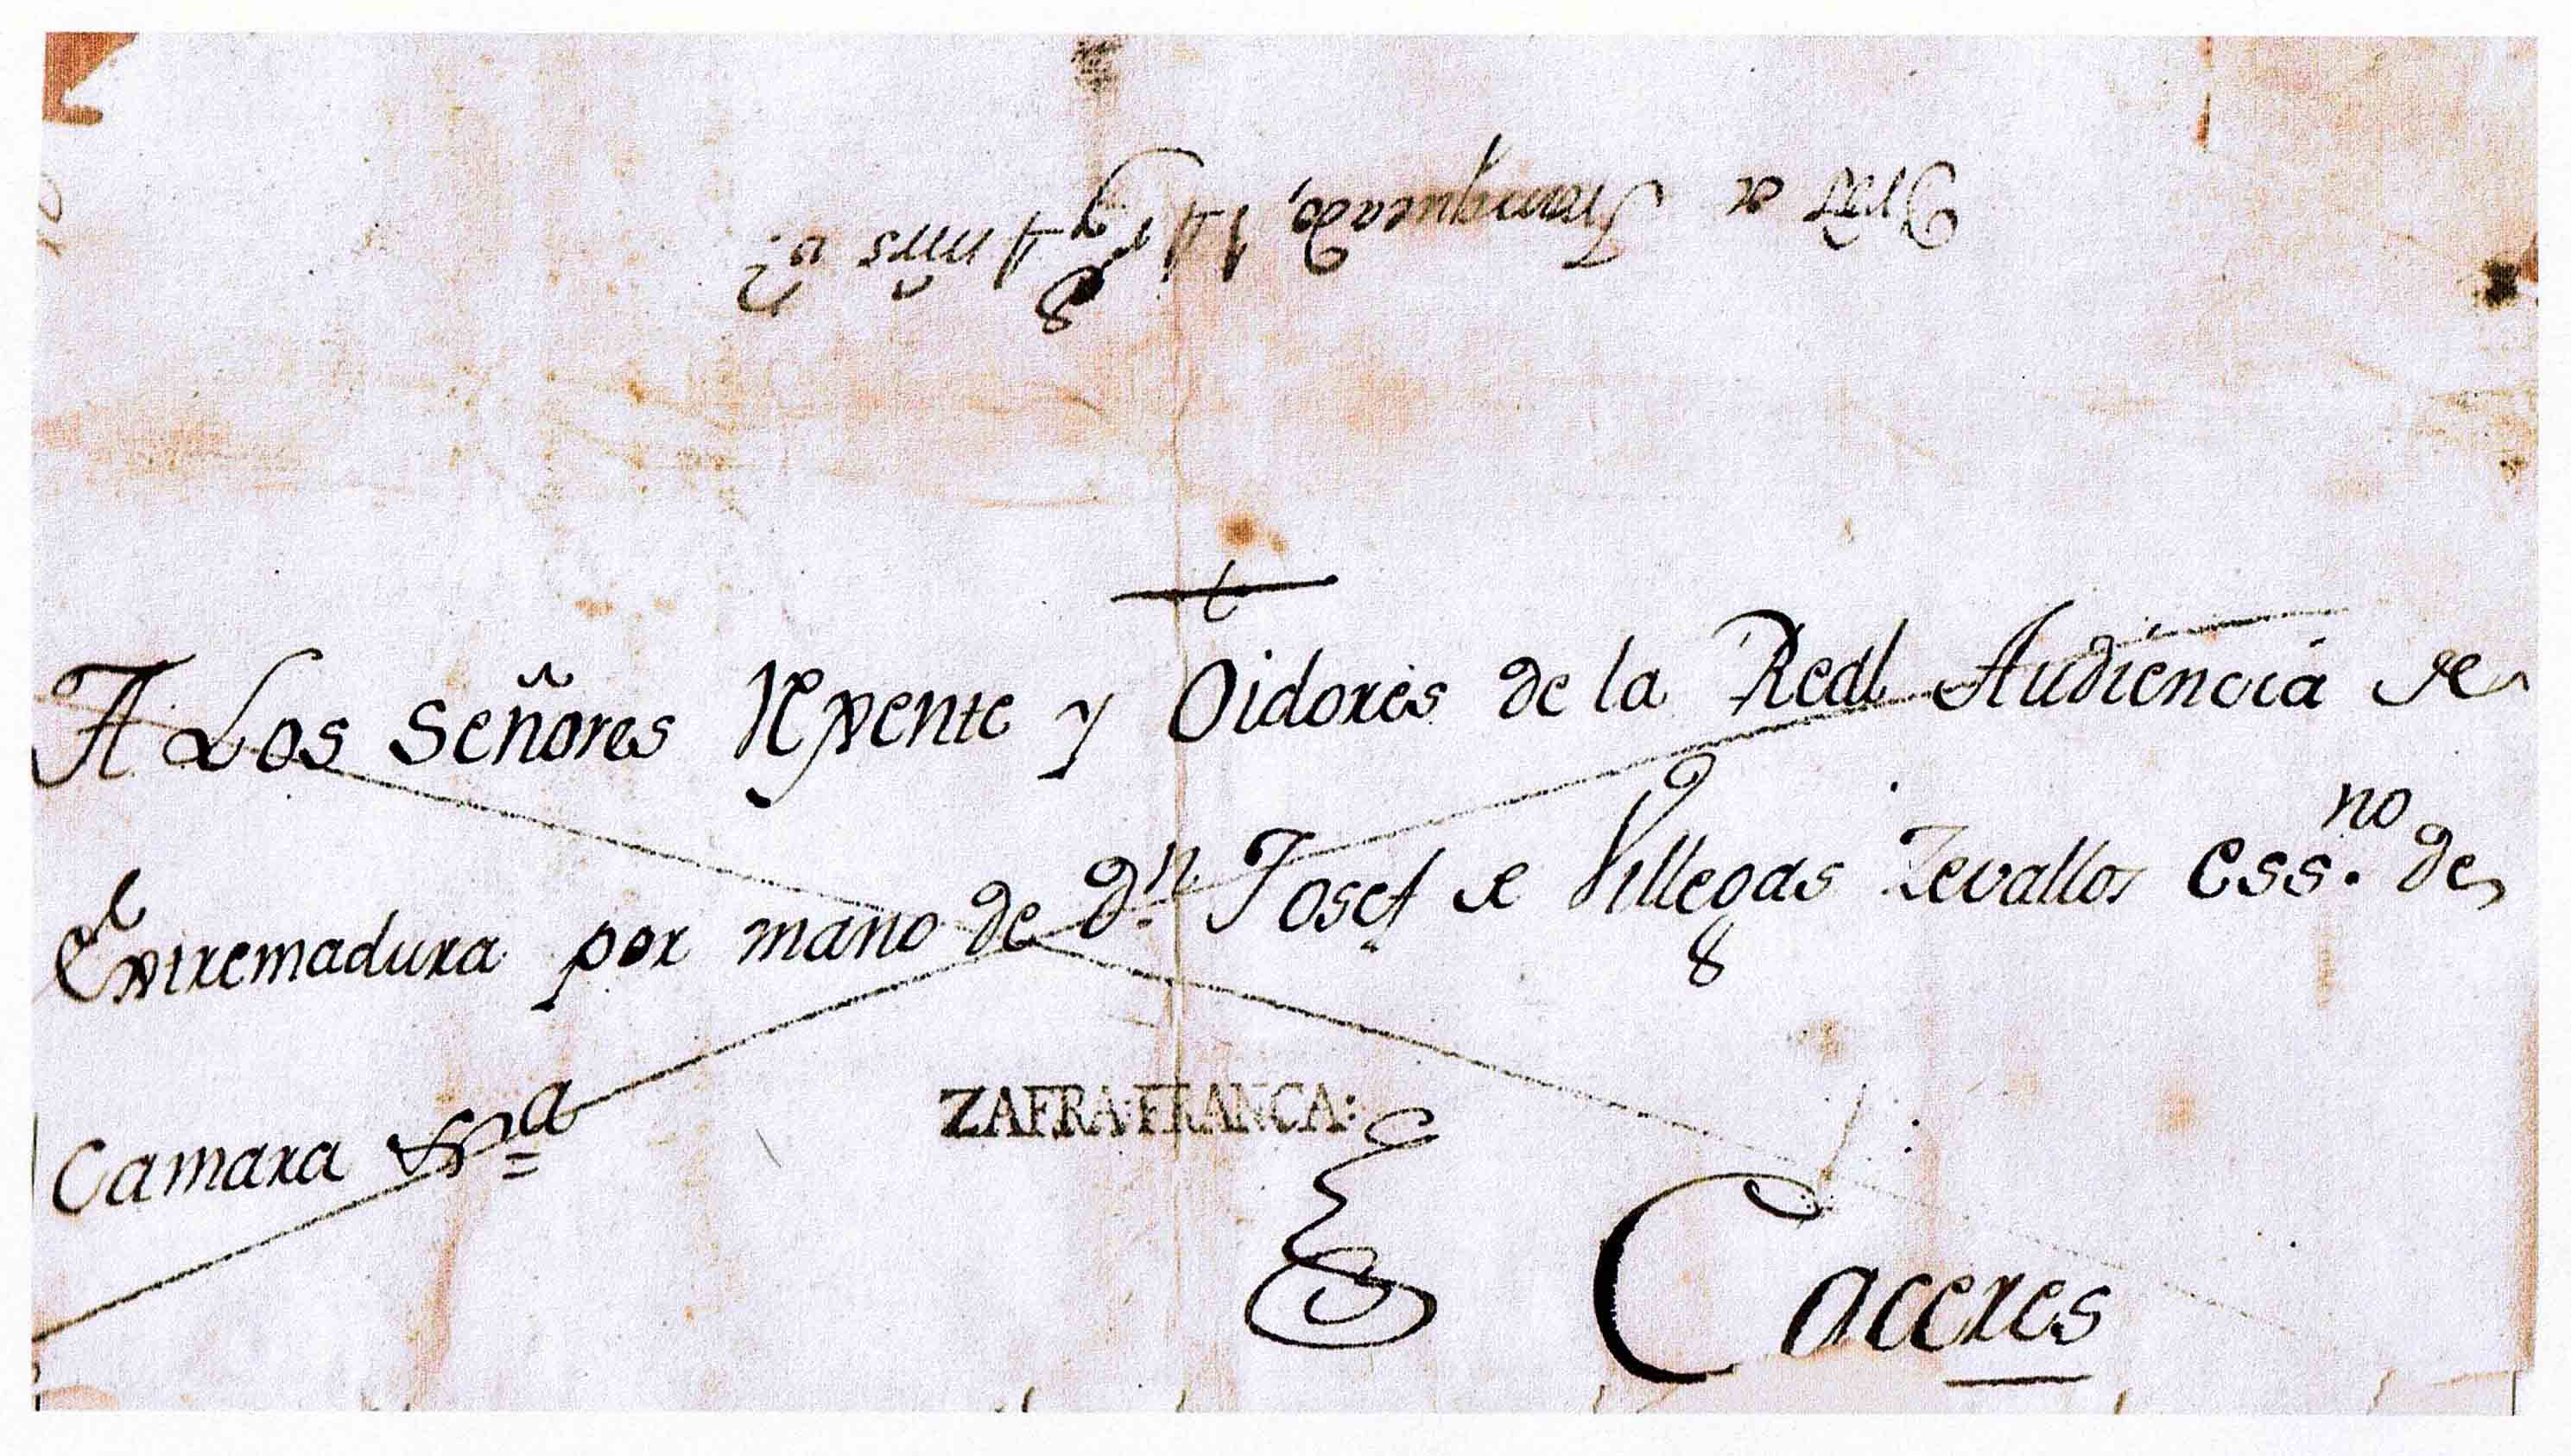 de Franqueado, 14 r.s y 4 mrs
A Los Señores Rexente y Oidores de la Real Audiencia de
Extremadura por mano de Dn. Josef de Villegas Zevallos Essno. de
Camara
ZAFRA FRANCA:
Caceres